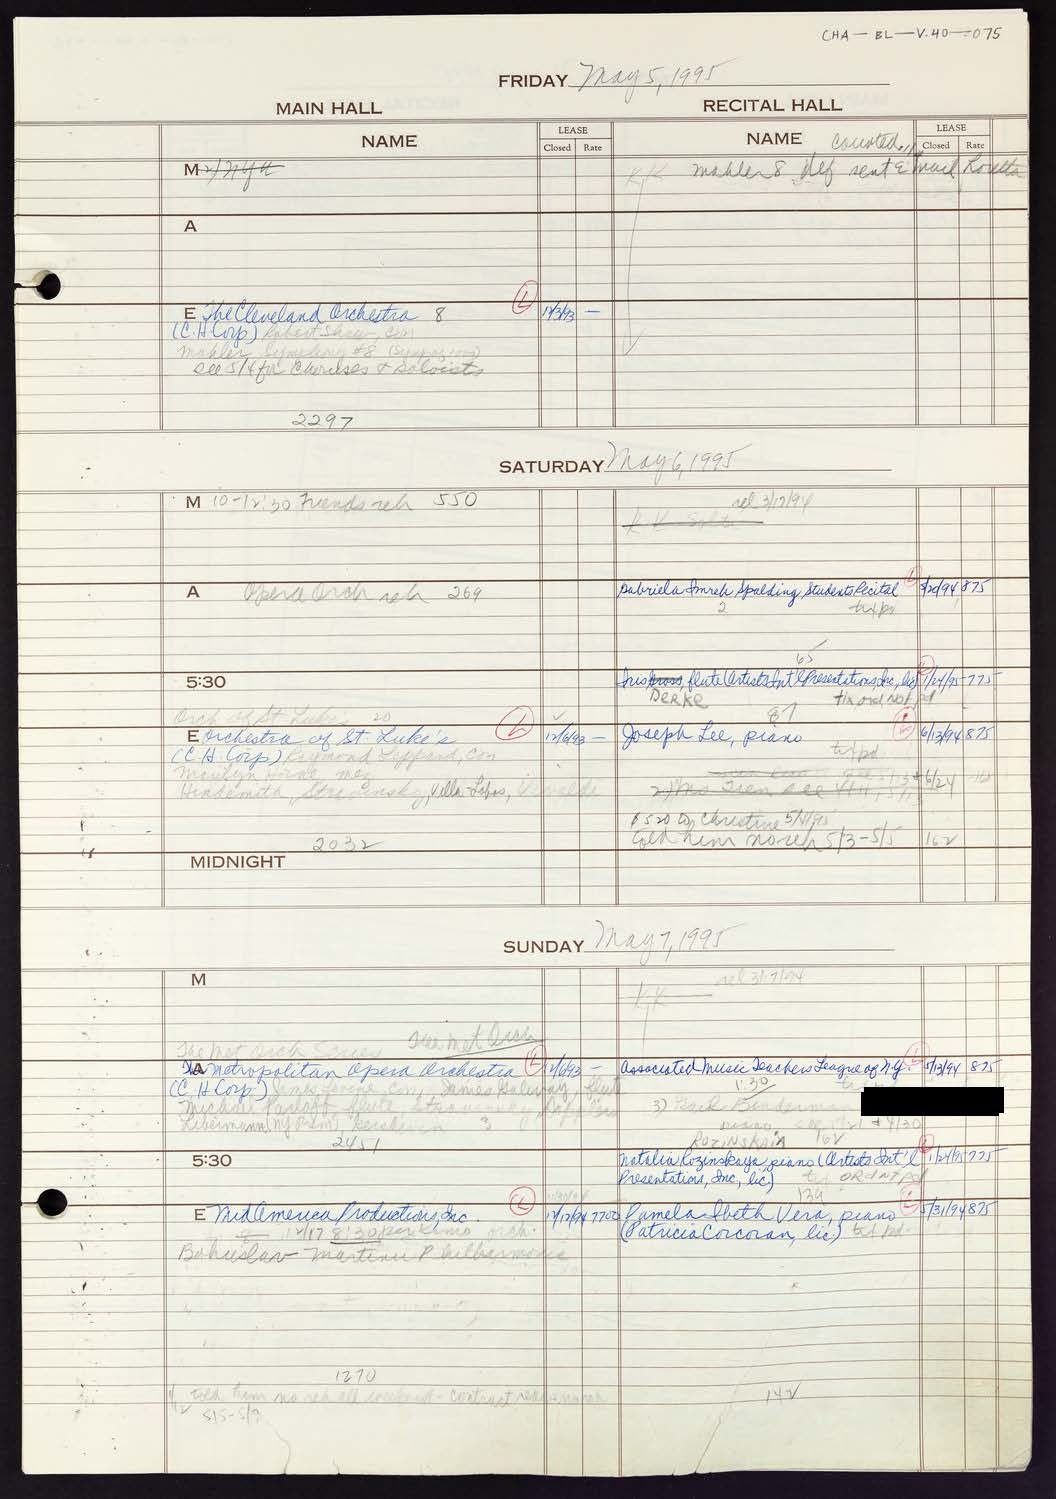 CHA — BL — V.40 — 075
FRIDAY May 5, 1995
MAIN HALL
RECITAL HALL
NAME
LEASE
Closed Rate
NAME
LEASE
Closed Rate
counted
M
K K Mahler 8 sent E Mail Loretta
A
E The Cleveland Orchestra 8 L 12/3/93 —
(C.H Corp) Robert Shaw, Con
Mahler Symphony #8
see 5/4 for Choruses & Soloists
2297
SATURDAY May 6, 1995
M 10-12:30 Friends reh 550
rel 3/17/94
K K
A Opera Orch reh 269
Gabriela Imreh Spalding Students Recital L 94 875
2 tx pd
65
5:30
Iris flute (Artists Int'l Presentations, Inc, lic) L 1/24/95 775
DERKE
tix ord not pd
Orch of St Luke's 20
87
E Orchestra of St. Luke's L 12/6/93 —
Joseph Lee, piano L 6/13/94 875
(C.H Corp) Raymond Leppard, Con
tx pd
Marilyn Horne, mez
Hindemith, Stravinsky, Villa Lobos, Vivaldi
6/24
$520 by Christine 5/4/95
told him no reh 5/3-5/5 162
2032
MIDNIGHT
SUNDAY May 7, 1995
M
rel 3/17/94
K K
The Met Orch Series The Met Orch
A The Metropolitan Opera Orchestra L —
Associated Music Teachers League of N.Y. L 875
(C.H Corp) James Levine Con, James Galway, flute
1:30
Michael Parloff, flute Stravinsky
3)
Gershwin 3
2451
ROZINSKAIA 162
5:30
Natalia Rozinskaya piano (Artists Int'l L 1/24/95 775
Presentations, Inc, lic) ORD NT pd
134
E MidAmerica Productions, Inc. L 12/12/94 7700
Pamela Ibeth Vera, piano L 5/31/94 875
8:30 per
(Patricia Corcoran, lic) txt pd
Bohuslav Martinu Philharmonic
1270
told him no reh all weekend - contract
5/5-5/7
142